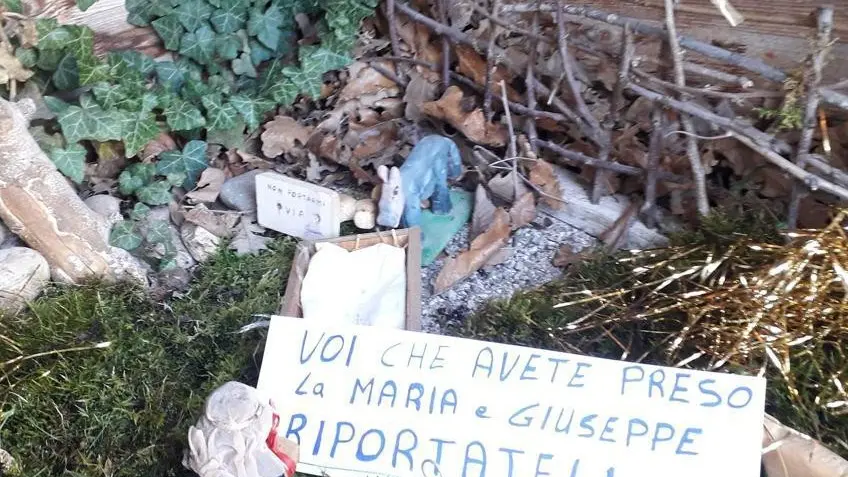 NON PORTARMI
VIA
VOI CHE AVETE PRESO
La MARIA e GIUSEPPE
RIPORTATELI